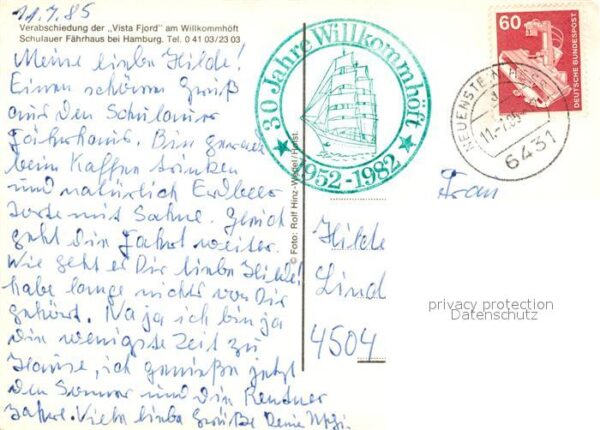 11.7.85
Verabschiedung der „Vista Fjord" am Willkommhöft
Schulauer Fährhaus bei Hamburg. Tel. 0 41 03/23 03
Meine liebe Hilde!
Einen schönen Gruß
aus den Schulauer
Fährhaus. Bin gerade
beim Kaffee trinken
und natürlich Erdbeer
torte mit Sahne. Gleich
geht die Fahrt weiter.
Wie geht es Dir liebe Hilde!
habe lange nichts von Dir
gehört. Na ja ich bin ja
die wenigste Zeit zu
Hause, ich genieße jetzt
den Sommer und die Rentner
Jahre. Viele liebe Grüße Deine
30 Jahre Willkommhöft
1952-1982
© Foto: Rolf Hinz-Wedel/Holst.
60
DEUTSCHE BUNDESPOST
NEUENSTE
11.-7.85
6431
Frau
Hilde
Lind
4504
privacy protection
Datenschutz